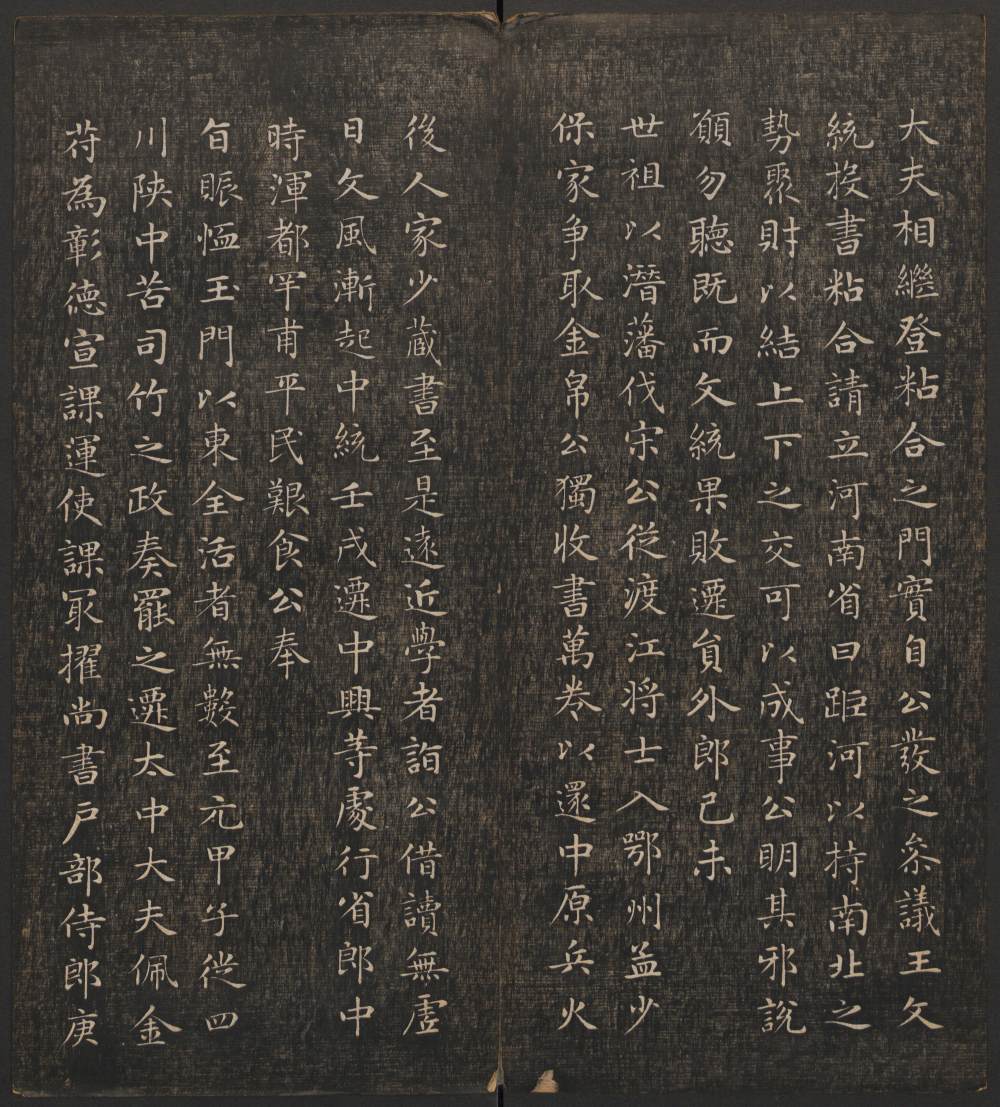 大夫相繼登粘合之門實自公發之叅議王文
統投書粘合請立河南省曰距河以持南北之
勢聚財以結上下之交可以成事公明其邪說
願勿聽既而文統果敗遷貟外郎己未
世祖以潛藩伐宋公從渡江將士入鄂州益少
保家爭取金帛公獨收書萬卷以還中原兵火
後人家少藏書至是遠近學者詣公借讀無虛
日文風漸起中統壬戌遷中興等處行省郎中
時渾都罕甫平民艱食公奉
旨賑恤玉門以東全活者無數至元甲子從四
川陝中苦司竹之政奏罷之遷太中大夫佩金
苻為彰德宣課運使課冣擢尚書户部侍郎庚